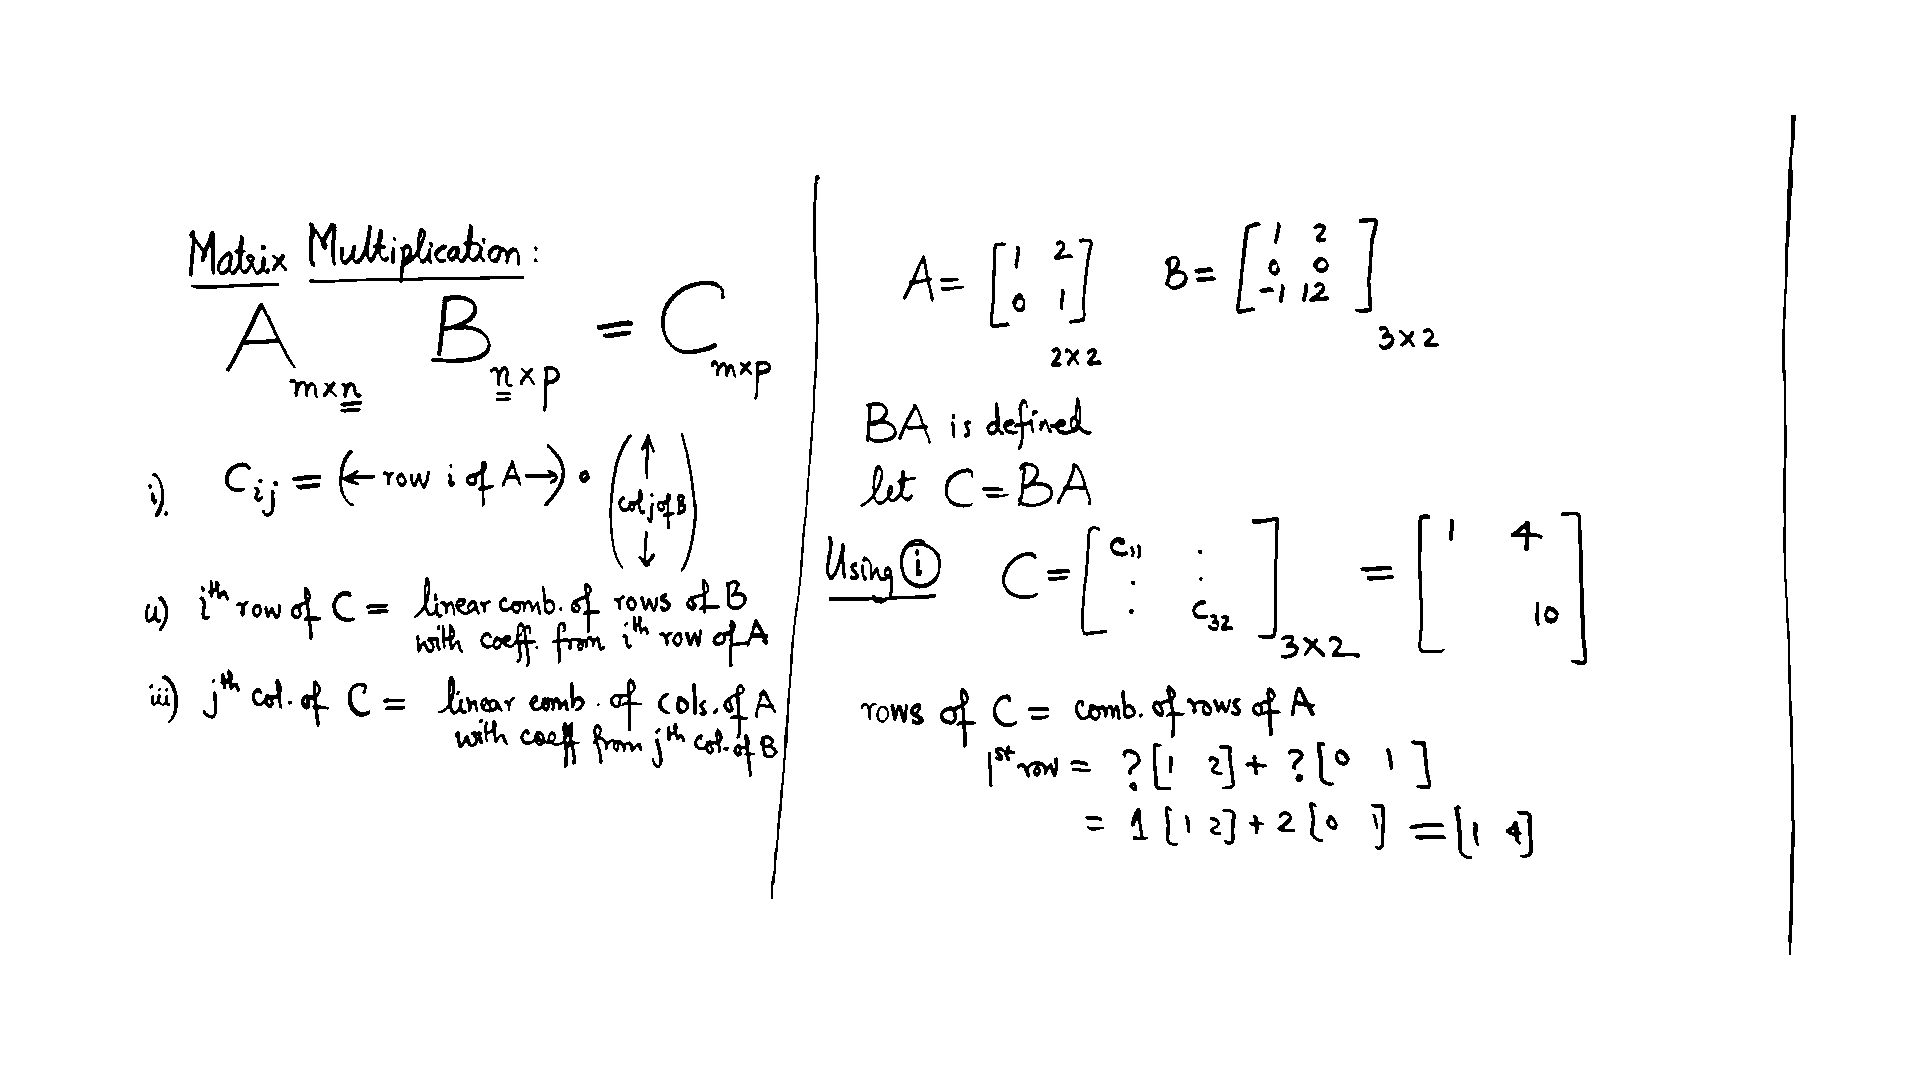 Matrix Multiplication:
A m×n B n×p = C m×p
i). Cij = (←row i of A→) • (↑ col j of B ↓)
ii) ith row of C = linear comb. of rows of B
with coeff. from ith row of A
iii) jth col. of C = linear comb. of cols. of A
with coeff from jth col. of B
A = [1 2
0 1] 2×2
B = [1 2
0 0
-1 12] 3×2
BA is defined
let C = BA
Using (i) C = [C11 .
: :
. C32] 3×2 = [1 4
10]
rows of C = comb. of rows of A
1st row = ?[1 2] + ?[0 1]
= 1[1 2] + 2[0 1] = [1 4]